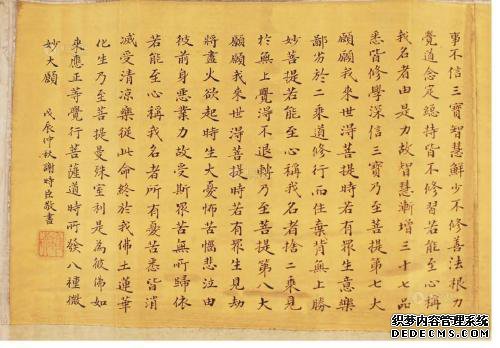 事不信三寶智慧鮮少不修善法根力
覺道念定總持皆不修習若能至心稱
我名者由是力故智慧漸增三十七品
悉皆修學深信三寶乃至菩提第七大
願願我來世得菩提時若有眾生意樂
鄙劣於二乘道修行而住棄背無上勝
妙菩提若能至心稱我名者捨二乘見
於無上覺得不退轉乃至菩提第八大
願願我來世得菩提時若有眾生見劫
將盡火欲起時生大憂怖苦惱悲泣由
彼前身惡業力故受斯眾苦無所歸依
若能至心稱我名者所有憂苦悉皆消
滅受清涼樂從此命終於我佛土蓮華
化生乃至菩提曼殊室利是為彼佛如
來應正等覺行菩薩道時所發八種微
妙大願
戊辰仲秋謝時臣敬書
织梦内容管理系统
DEDECMS.COM